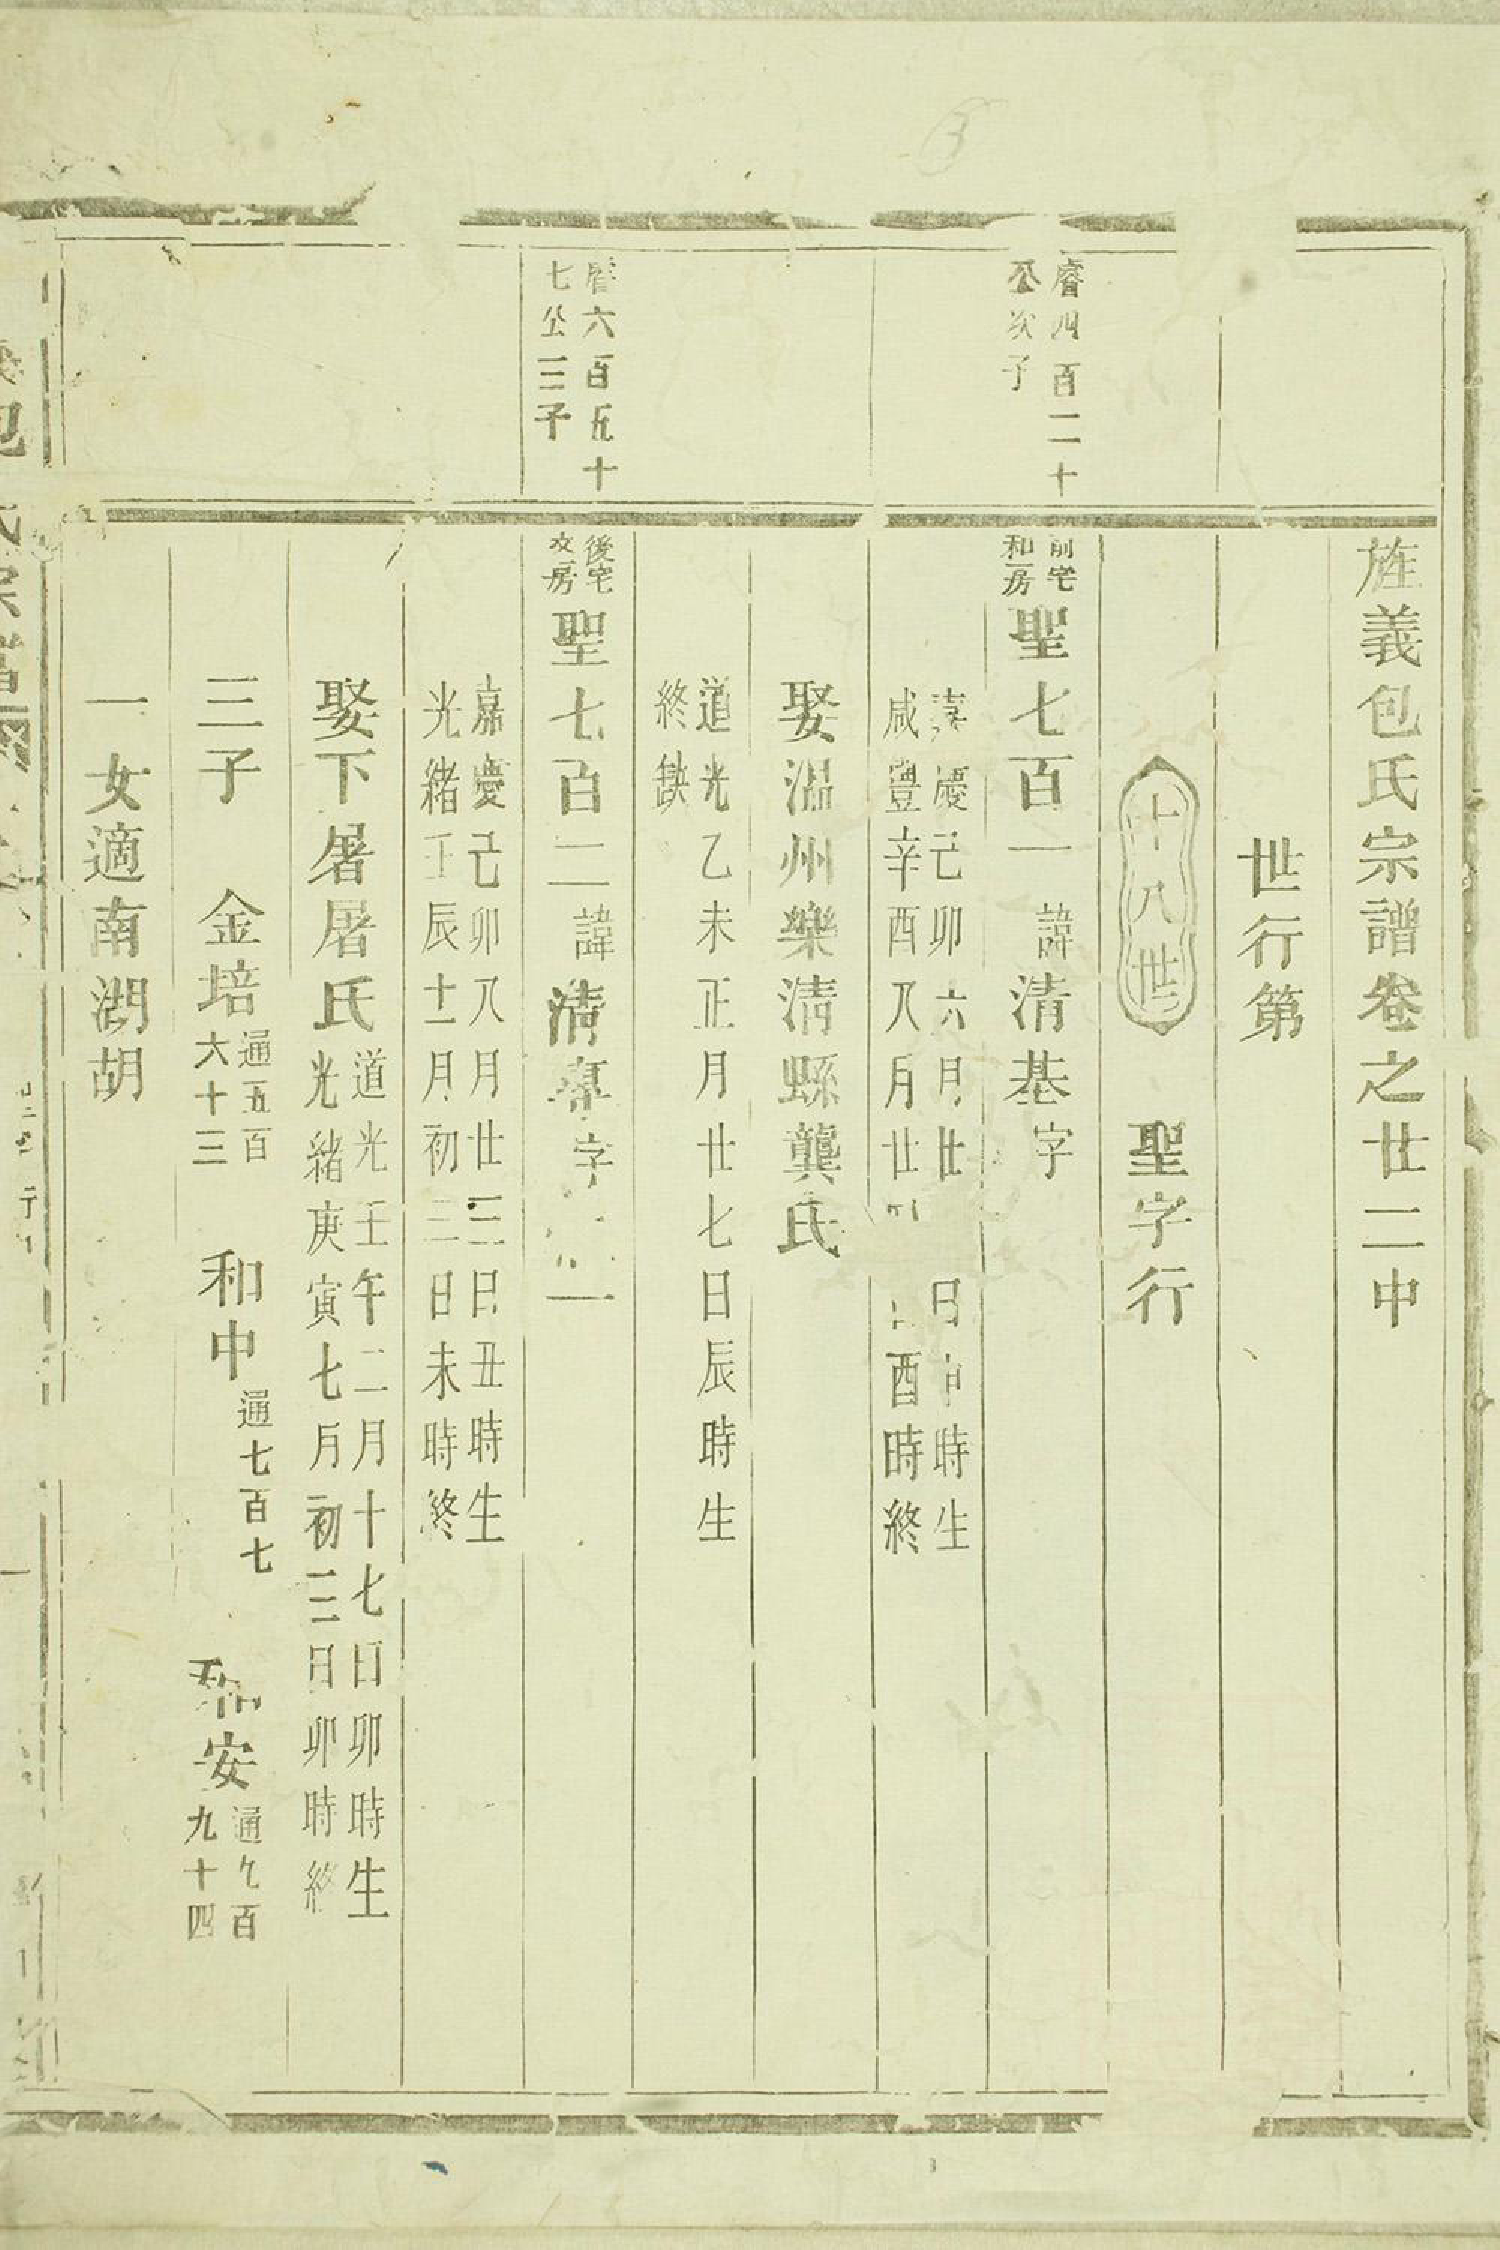 旌義包氏宗譜卷之廿二中
世行第
十八世 聖字行
睿四百二十
公次子
前宅
和房
聖七百一 諱清基 字
嘉慶己卯六月廿 日申時生
咸豐辛酉八月廿 酉時終
娶溫州樂清縣龔氏
道光乙未正月廿七日辰時生
終缺
睿六百五十
七公三子
後宅
文房
聖七百二 諱清亭 字 一
嘉慶己卯八月廿三日丑時生
光緒壬辰十一月初三日未時終
娶下屠屠氏
道光壬午二月十七日卯時生
光緒庚寅七月初三日卯時終
三子 金培 通五百六十三 和中 通七百七 和安 通九百九十四
一女適南澗胡